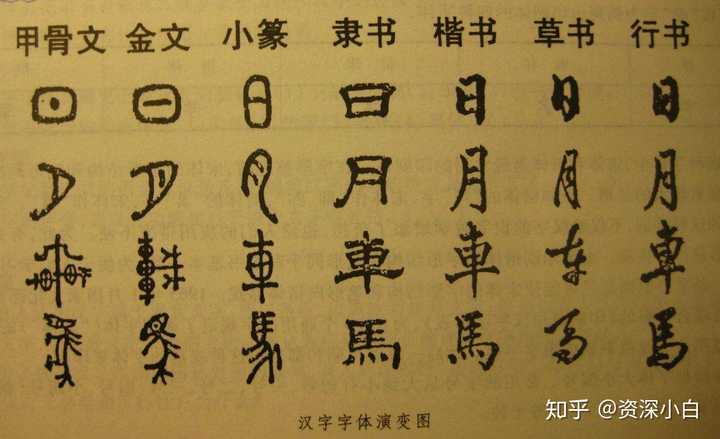 甲骨文 金文 小篆 隶书 楷书 草书 行书
日 日 日 日 日 日 日
月 月 月 月 月 月 月
車 車 車 車 車 車 車
馬 馬 馬 馬 馬 馬 馬
汉字字体演变图
知乎 @资深小白